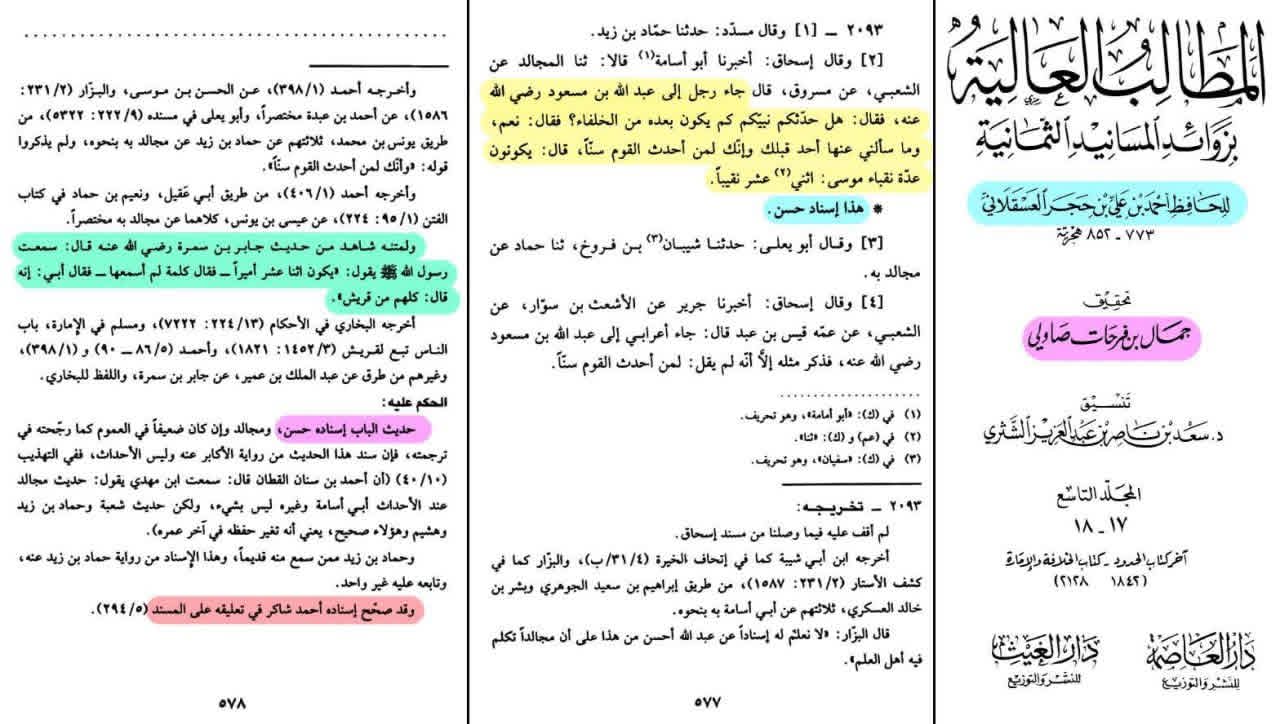 المطالب العالية
بزوائد المسانيد الثمانية
للحافظ أحمد بن علي بن حجر العسقلاني
٧٧٣ - ٨٥٢ هجرية
تحقيق
جمال بن فرحات صاولي
تنسيق
د. سعد بن ناصر بن عبد العزيز الشثري
المجلد التاسع
١٧ - ١٨
آخر كتاب الحدود - كتاب الخلافة والإمارة
(١٨٤٢ - ٢١٢٨)
دار العاصمة
للنشر والتوزيع
دار الغيث
للنشر والتوزيع
٢٠٩٣ ــ [١] وقال مسدّد: حدثنا حمّاد بن زيد.
[٢] وقال إسحاق: أخبرنا أبو أسامة(١) قالا: ثنا المجالد عن
الشعبي، عن مسروق، قال جاء رجل إلى عبد الله بن مسعود رضي الله
عنه، فقال: هل حدّثكم نبيّكم كم يكون بعده من الخلفاء؟ فقال: نعم،
وما سألني عنها أحد قبلك وإنّك لمن أحدث القوم سنّاً، قال: يكونون
عدّة نقباء موسى: اثني(٢) عشر نقيباً.
* هذا إسناد حسن.
[٣] وقال أبو يعلى: حدثنا شيبان(٣) بن فروخ، ثنا حماد عن
مجالد به.
[٤] وقال إسحاق: أخبرنا جرير عن الأشعث بن سوّار، عن
الشعبي، عن عمّه قيس بن عبد قال: جاء أعرابي إلى عبد الله بن مسعود
رضي الله عنه، فذكر مثله إلاَّ أنّه لم يقل: لمن أحدث القوم سنّاً.
(١) في (ك): «أبو أمامة»، وهو تحريف.
(٢) في (عم) و (ك): «ثنا».
(٣) في (ك): «سفيان»، وهو تحريف.
٢٠٩٣ ــ تخريجه:
لم أقف عليه فيما وصلنا من مسند إسحاق.
أخرجه ابن أبي شيبة كما في إتحاف الخيرة (٤/٣١/ب)، والبزّار كما في
كشف الأستار (٢/٢٣١: ١٥٨٧)، من طريق إبراهيم بن سعيد الجوهري وبشر بن
خالد العسكري، ثلاثتهم عن أبي أسامة به بنحوه.
قال البزّار: «لا نعلم له إسناداً عن عبد الله أحسن من هذا على أن مجالداً تكلم
فيه أهل العلم».
٥٧٧
وأخرجه أحمد (١/٣٩٨)، عن الحسن بن موسى، والبزّار (٢/٢٣١:
١٥٨٦)، عن أحمد بن عبدة مختصراً، وأبو يعلى في مسنده (٩/٢٢٢: ٥٣٢٢)، من
طريق يونس بن محمد، ثلاثتهم عن حماد بن زيد عن مجالد به بنحوه، ولم يذكروا
قوله: «وأنّك لمن أحدث القوم سنّاً».
وأخرجه أحمد (١/٤٠٦)، من طريق أبي عَقيل، ونعيم بن حماد في كتاب
الفتن (١/٩٥: ٢٢٤)، عن عيسى بن يونس، كلاهما عن مجالد به مختصراً.
ولمتنه شاهد من حديث جابر بن سمرة رضي الله عنه قال: سمعت
رسول الله ﷺ يقول: «يكون اثنا عشر أميراً ــ فقال كلمة لم أسمعها ــ فقال أبي: إنه
قال: كلهم من قريش».
أخرجه البخاري في الأحكام (١٣/٢٢٤: ٧٢٢٢)، ومسلم في الإمارة، باب
الناس تبع لقريش (٣/١٤٥٢: ١٨٢١)، وأحمد (٥/٨٦ ــ ٩٠) و (١/٣٩٨)،
وغيرهم من طرق عن عبد الملك بن عمير، عن جابر بن سمرة، واللفظ للبخاري.
الحكم عليه:
حديث الباب إسناده حسن، ومجالد وإن كان ضعيفاً في العموم كما رجّحته في
ترجمته، فإن سند هذا الحديث من رواية الأكابر عنه وليس الأحداث، ففي التهذيب
(١٠/٤٠) (أن أحمد بن سنان القطان قال: سمعت ابن مهدي يقول: حديث مجالد
عند الأحداث أبي أسامة وغيره ليس بشيء، ولكن حديث شعبة وحماد بن زيد
وهشيم وهؤلاء صحيح، يعني أنه تغير حفظه في آخر عمره).
وحماد بن زيد ممن سمع منه قديماً، وهذا الإسناد من رواية حماد بن زيد عنه،
وتابعه عليه غير واحد.
وقد صحّح إسناده أحمد شاكر في تعليقه على المسند (٥/٢٩٤).
٥٧٨